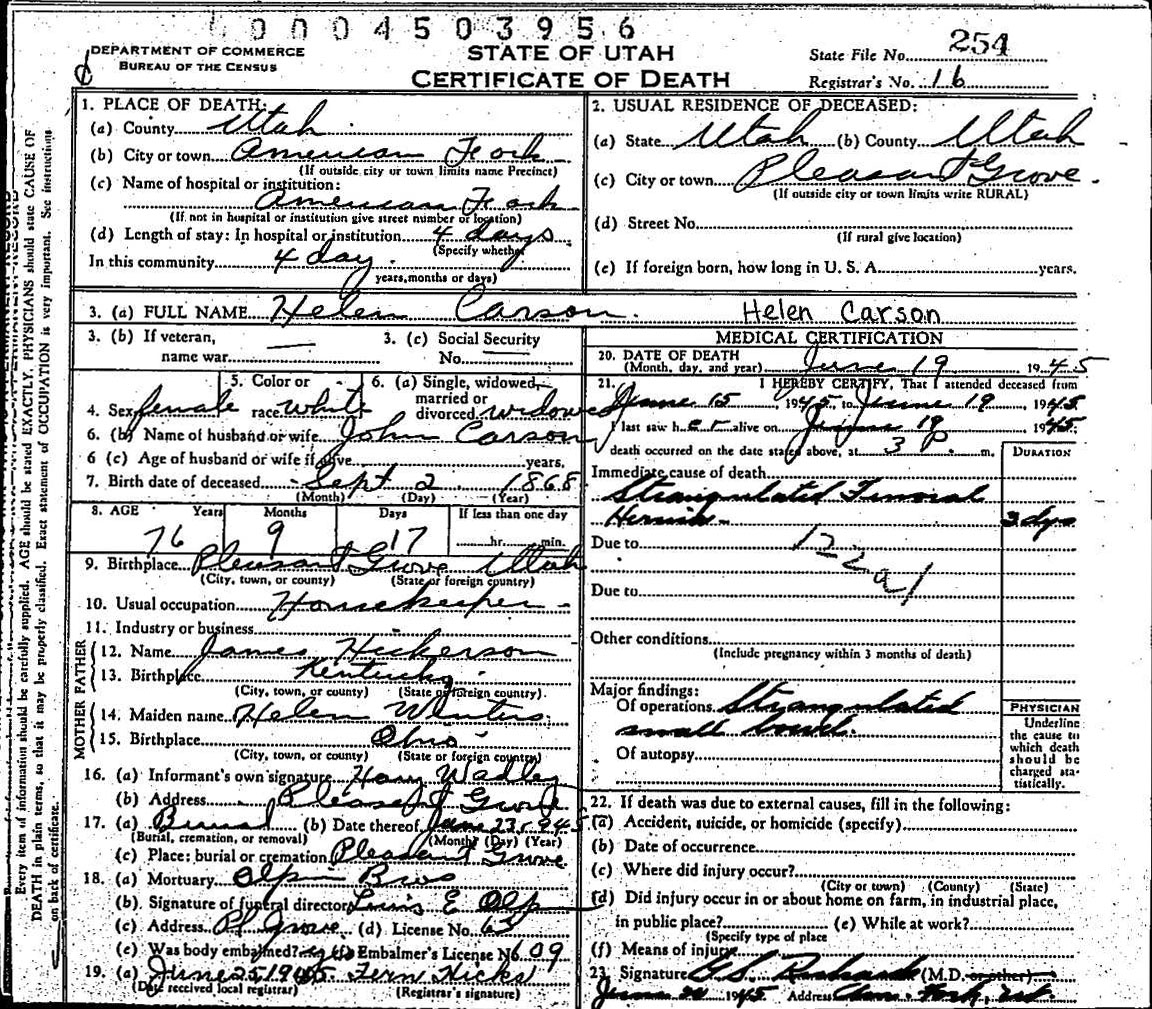 0004503956
DEPARTMENT OF COMMERCE
BUREAU OF THE CENSUS
STATE OF UTAH
CERTIFICATE OF DEATH
State File No. 254
Registrar's No. 16
1. PLACE OF DEATH:
(a) County Utah
(b) City or town American Fork
(If outside city or town limits name Precinct)
(c) Name of hospital or institution:
American Fork
(If not in hospital or institution give street number or location)
(d) Length of stay: In hospital or institution 4 days
(Specify whether
In this community 4 day.
years, months or days)
2. USUAL RESIDENCE OF DECEASED:
(a) State Utah (b) County Utah
(c) City or town Pleasant Grove.
(If outside city or town limits write RURAL)
(d) Street No.
(If rural give location)
(e) If foreign born, how long in U. S. A. years.
3. (a) FULL NAME Helen Carson. Helen Carson
3. (b) If veteran,
name war —
3. (c) Social Security
No. —
4. Sex female
5. Color or
race white
6. (a) Single, widowed,
married or
divorced widowed
6. (b) Name of husband or wife John Carson
6 (c) Age of husband or wife if alive years,
7. Birth date of deceased Sept 2 1868
(Month) (Day) (Year)
8. AGE Years Months Days If less than one day
76 9 17 hr. min.
9. Birthplace Pleasant Grove Utah
(City, town, or county) (State or foreign country)
10. Usual occupation Housekeeper
11. Industry or business
FATHER
12. Name James Hickerson
13. Birthplace Kentucky
(City, town, or county) (State or foreign country).
MOTHER
14. Maiden name Helen Winters
15. Birthplace Ohio
(City, town, or county) (State or foreign country)
16. (a) Informant's own signature Harry Wadley
(b) Address Pleasant Grove
17. (a) Burial (b) Date thereof June 23 1945
(Burial, cremation, or removal) (Month) (Day) (Year)
(c) Place: burial or cremation Pleasant Grove
18. (a) Mortuary Olpin Bros
(b) Signature of funeral director E Olp
(c) Address Pl Grove (d) License No. 63
(e) Was body embalmed? yes (f) Embalmer's License No. 609
19. (a) June 25 1945 Fern Hicks
(Date received local registrar) (Registrar's signature)
MEDICAL CERTIFICATION
20. DATE OF DEATH
(Month, day, and year) June 19 1945
21. I HEREBY CERTIFY, That I attended deceased from
June 15, 1945, to June 19, 1945
I last saw her alive on June 19 1945;
death occurred on the date stated above, at 3 P. m.
DURATION
Immediate cause of death
Strangulated Femoral
Hernia 3 dys
Due to 122a1
Due to
Other conditions
(Include pregnancy within 3 months of death)
Major findings:
Of operations Strangulated
small bowel.
Of autopsy
PHYSICIAN
Underline
the cause to
which death
should be
charged sta-
tistically.
22. If death was due to external causes, fill in the following:
(a) Accident, suicide, or homicide (specify)
(b) Date of occurrence
(c) Where did injury occur?
(City or town) (County) (State)
(d) Did injury occur in or about home on farm, in industrial place,
in public place? (e) While at work?
(Specify type of place
(f) Means of injury
23. Signature (M.D. or other)
June 20 1945 Address Am. Fork, Ut.
Every item of information should be carefully supplied. AGE should be stated EXACTLY. PHYSICIANS should state CAUSE OF
DEATH in plain terms, so that it may be properly classified. Exact statement of OCCUPATION is very important. See instructions
on back of certificate.